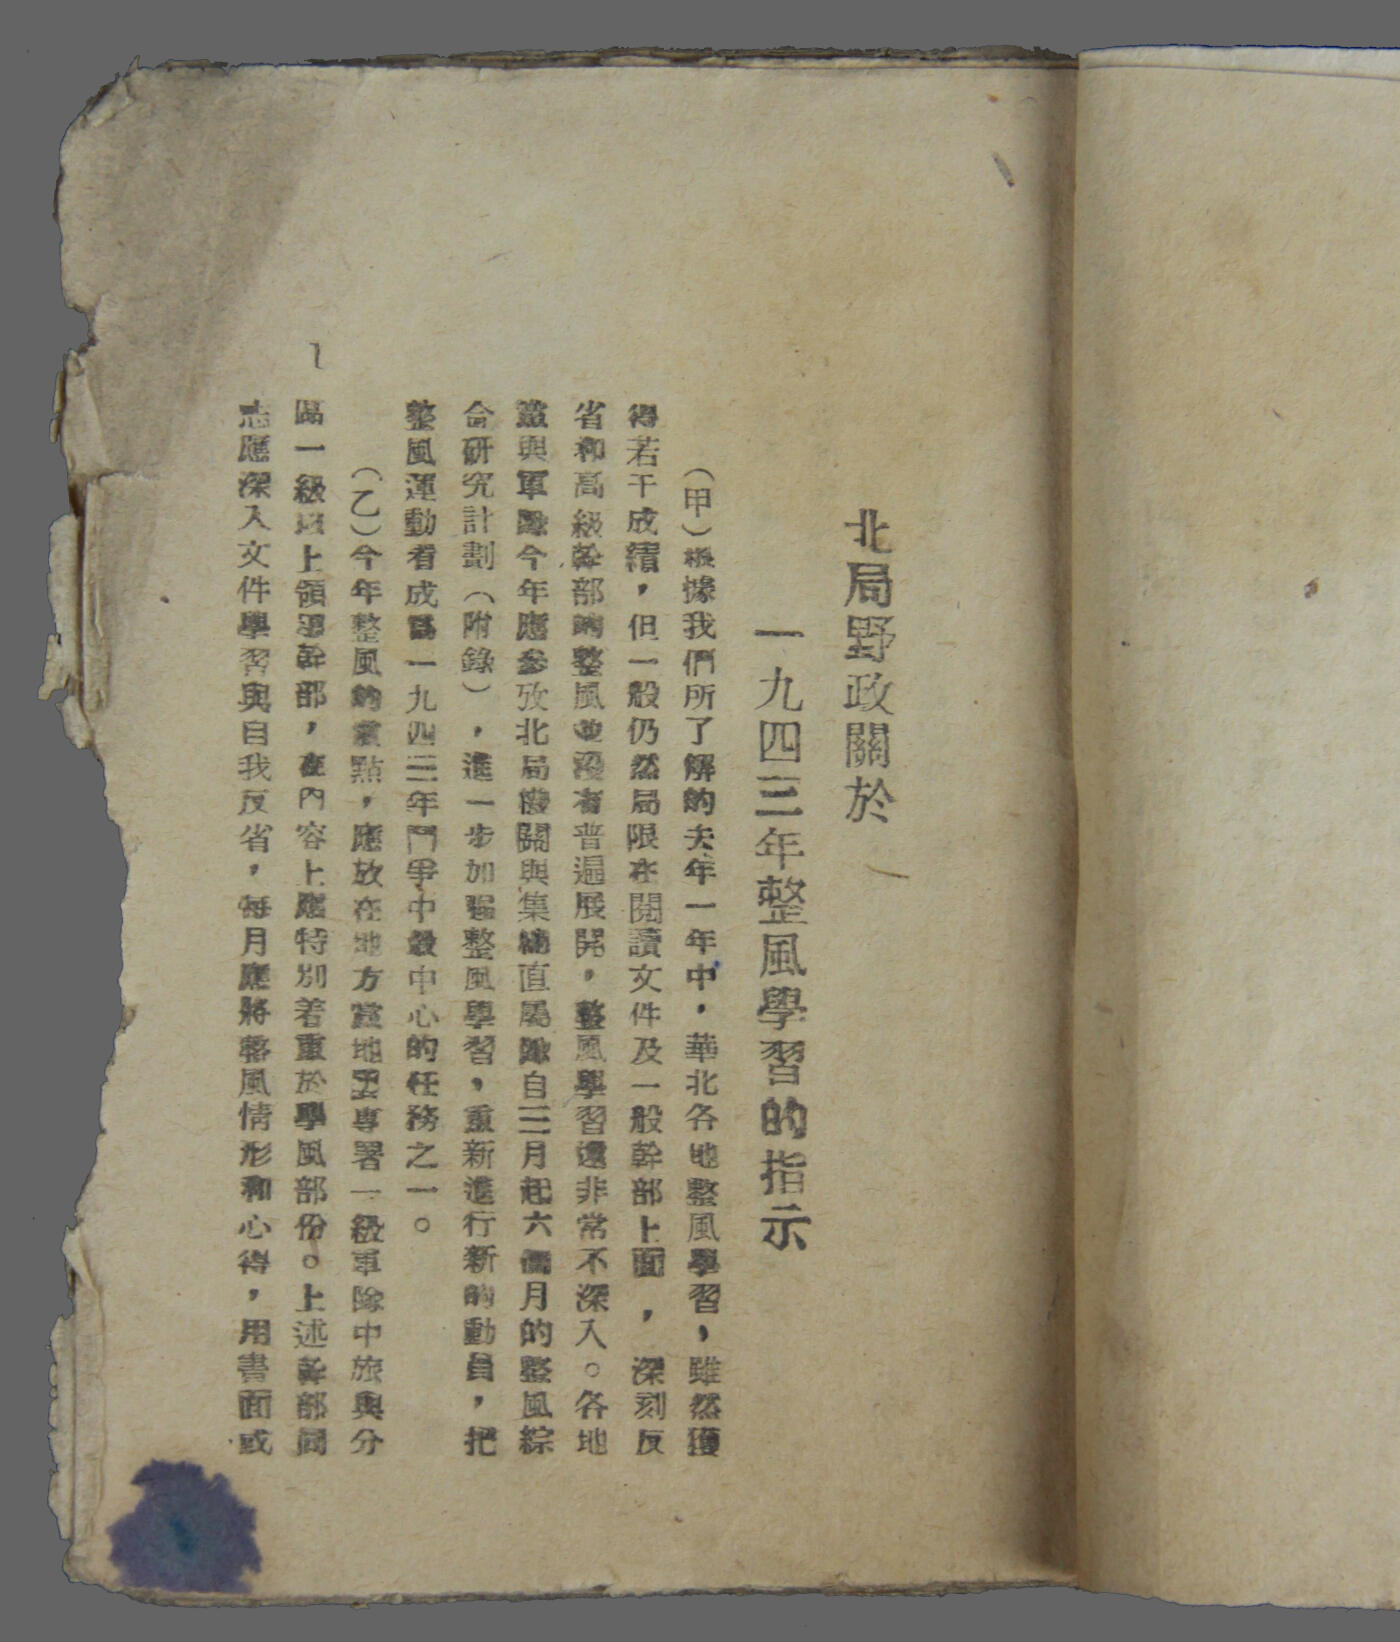 北局野政關於
一九四三年整風學習的指示
（甲）根據我們所了解的去年一年中，華北各地整風學習，雖然獲
得若干成績，但一般仍然局限在閱讀文件及一般幹部上面，深刻反
省和高級幹部的整風並沒有普遍展開，整風學習還非常不深入。各地
黨與軍隊今年應參攷北局機關與集總直屬隊自三月起六個月的整風綜
合研究計劃（附錄），進一步加强整風學習，重新進行新的動員，把
整風運動看成爲一九四三年鬥爭中最中心的任務之一。
（乙）今年整風的重點，應放在地方黨地委專署一級軍隊中旅與分
區一級以上領導幹部，在內容上應特別着重於學風部份。上述幹部同
志應深入文件學習與自我反省，每月應將整風情形和心得，用書面或
1